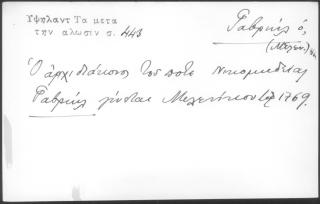 Υψηλαντ Τα μετα
την. αλωσιν σ. 443
Γαβριήλ ὁ,
(Μελεν.)
Ὁ ἀρχιδιάκονος τοῦ ποτε Νικομηδείας
Γαβριήλ γίνεται Μελενίκου 1769.